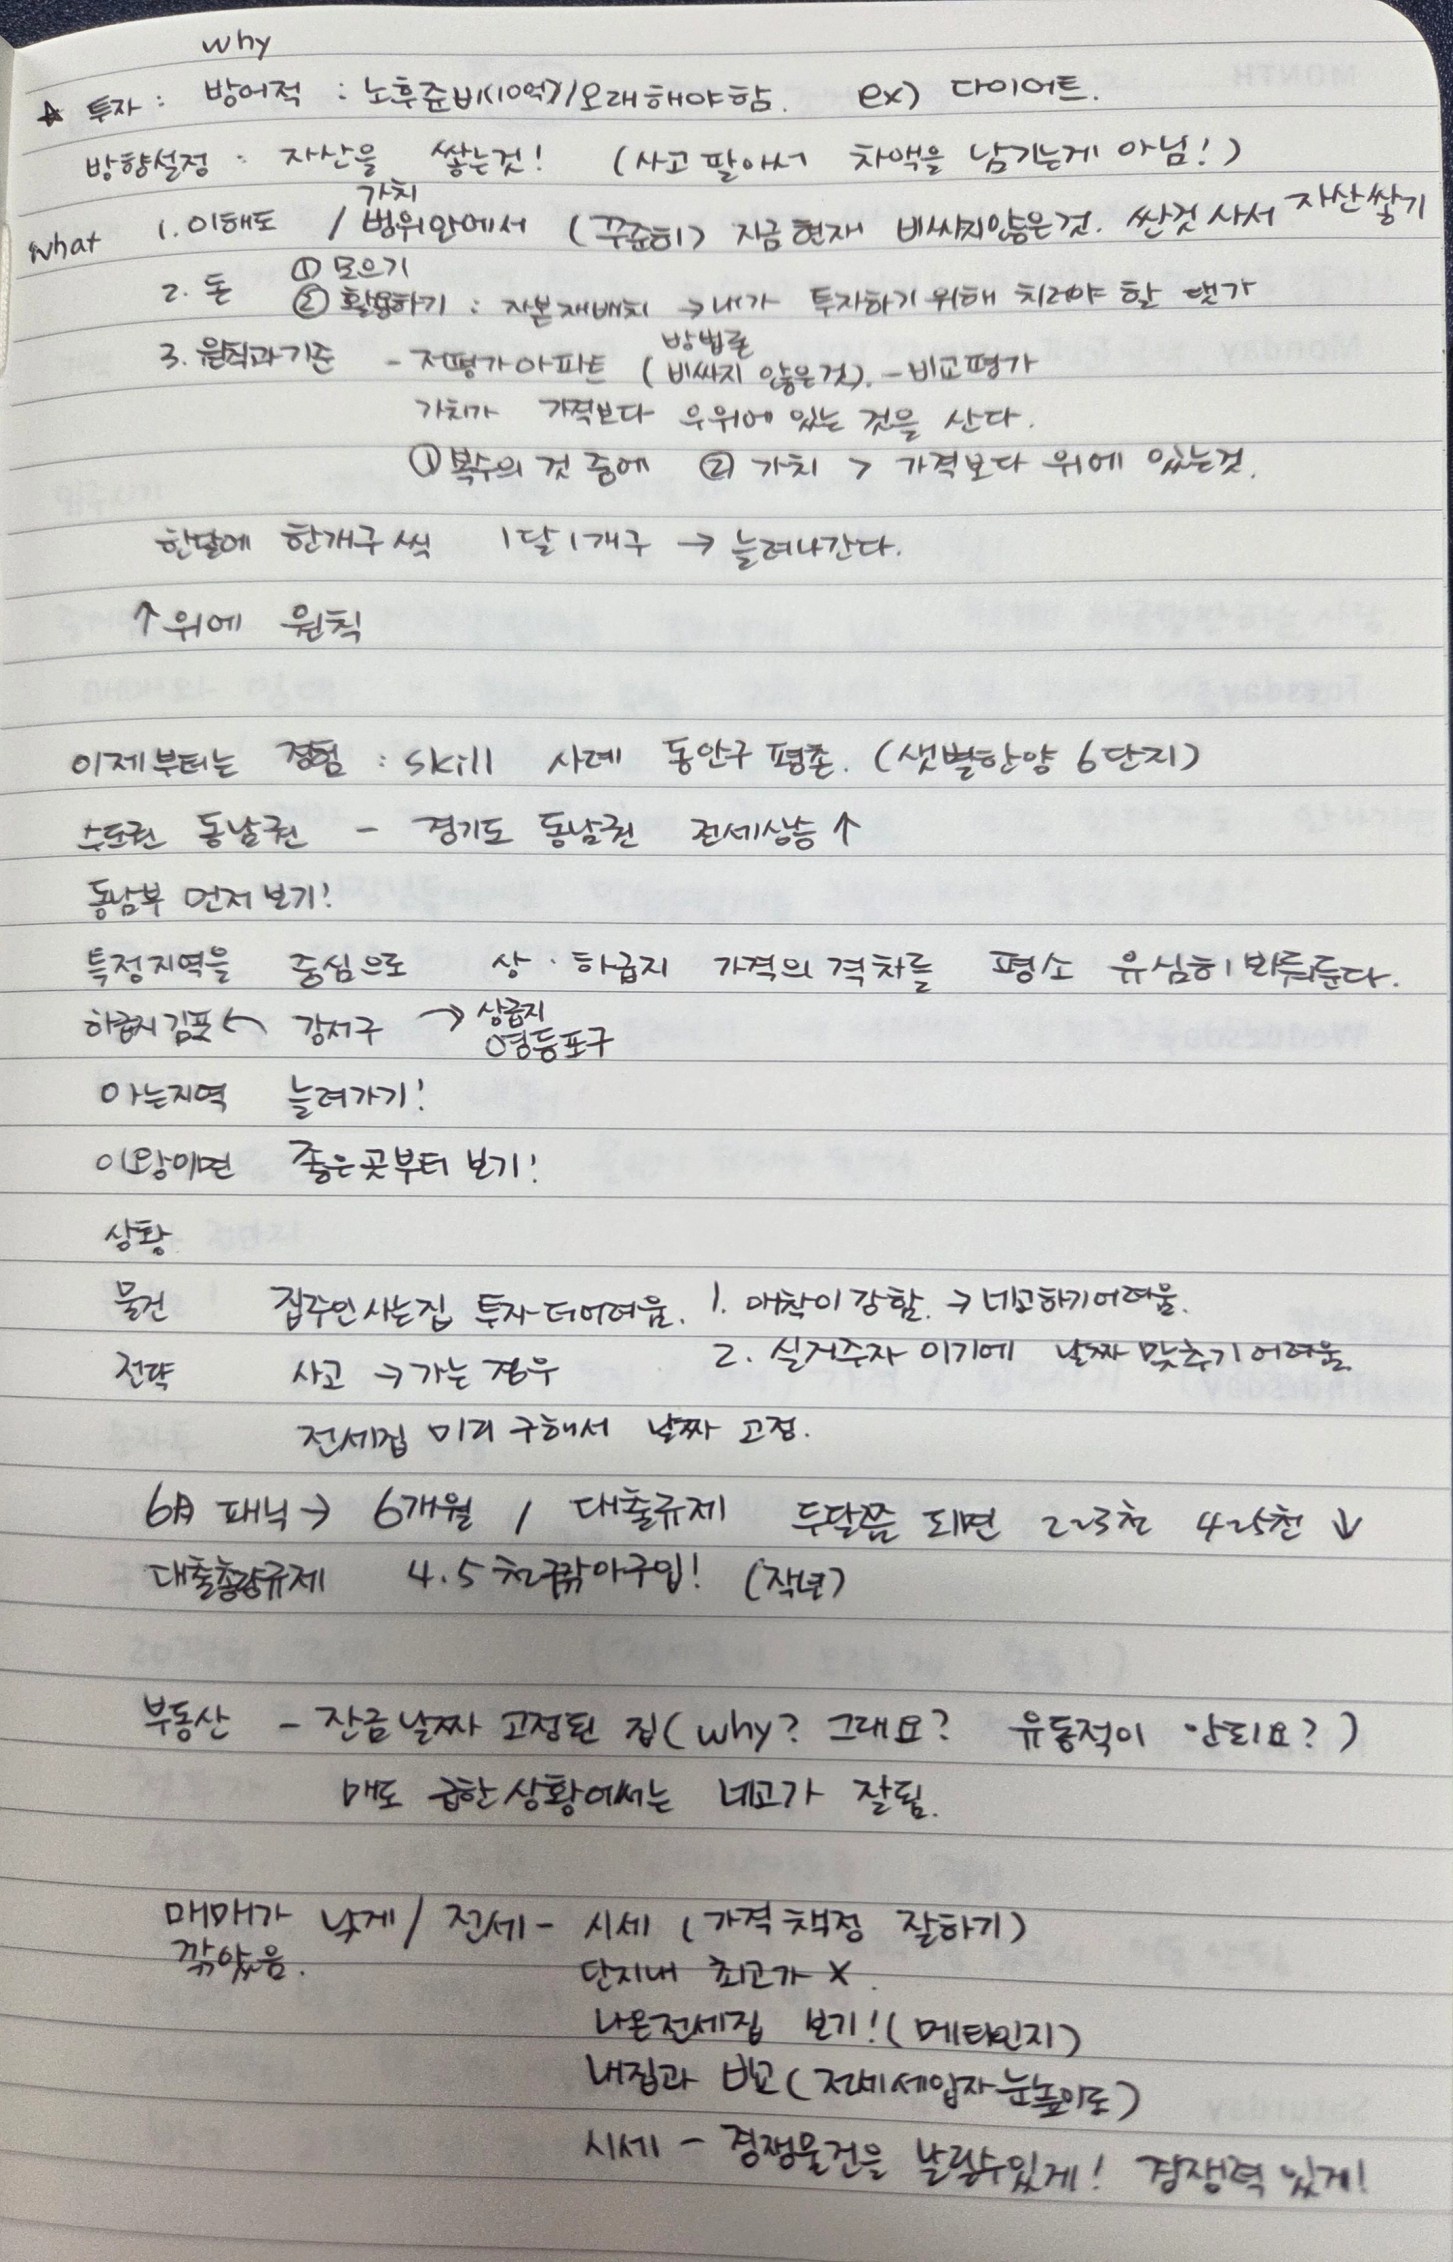 why
☆ 투자 : 방어적 : 노후준비(10억)/오래해야함. ex) 다이어트.
방향설정 : 자산을 쌓는것! (사고 팔아서 차액을 남기는게 아님!)
가치
what 1. 이해도 / 범위안에서 (꾸준히) 지금현재 비싸지않은것. 싼것사서 자산쌓기
① 모으기
2. 돈 ② 활용하기 : 자본재배치 → 내가 투자하기위해 치러야 할 댓가
방법론
3. 원칙과기준 - 저평가아파트 (비싸지 않은것). - 비교평가
가치가 가격보다 우위에 있는 것을 산다.
① 복수의 것 중에 ② 가치 > 가격보다 위에 있는것.
한달에 한개구씩 1달1개구 → 늘려나간다.
↑위에 원칙
이제부터는 경험 : skill 사례 동안구 평촌. (샛별한양 6단지)
수도권 동남권 - 경기도 동남권 전세상승↑
동남부 먼저보기!
특정지역을 중심으로 상·하급지 가격의격차를 평소 유심히 봐둔다.
하급지김포 ← 강서구 → 상급지
영등포구
아는지역 늘려가기!
이왕이면 좋은곳부터 보기!
상황
물건 집주인사는집 투자더어려움. 1. 애착이강함. → 네고하기어려움.
2. 실거주자 이기에 날짜맞추기어려움
전략 사고 → 가는 경우
전세집 미리 구해서 날짜 고정.
6月 패닉→ 6개월 / 대출규제 두달쯤 되면 2~3천 4~5천 ↓
대출총량규제 4.5천 깎아구입! (작년)
부동산 - 잔금날짜 고정된 집(why? 그래요? 유동적이 안되요?)
매도 급한상황에서는 네고가 잘됨.
매매가 낮게 / 전세 - 시세 (가격책정 잘하기)
깎았음.
단지내 최고가 X.
나온전세집 보기! (메타인지)
내집과 비교 (전세세입자눈높이로)
시세 - 경쟁물건을 날릴수있게! 경쟁력 있게!